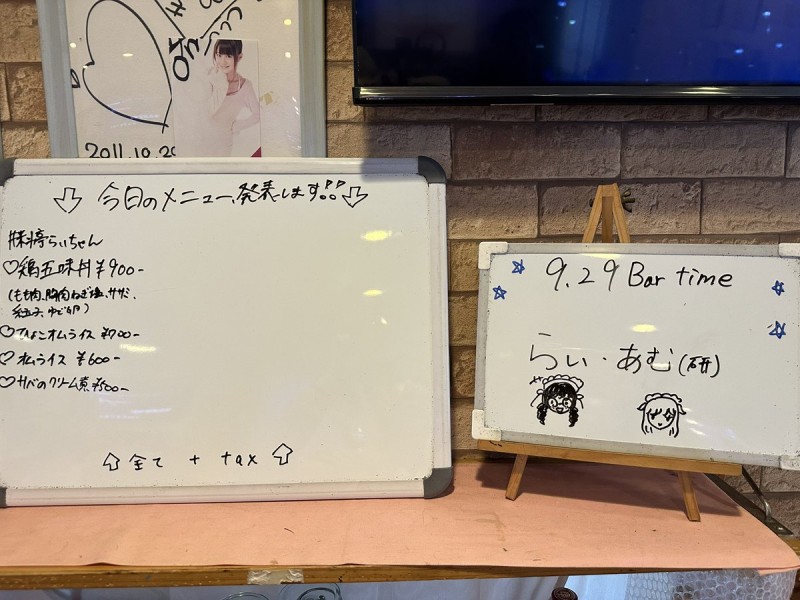 2011.10.2
⇩ 今日のメニュー、発表します!! ⇩
らぃちゃん
♡鶏五味丼 ¥900-
(もも肉、胸肉ねぎ塩、ササミ、
玉子、ゆで卵)
♡ひよこオムライス ¥700-
♡オムライス ¥600-
♡サバのクリーム煮
⇧ 全て + tax ⇧
9.29 Bar time
らぃ・あむ(研)